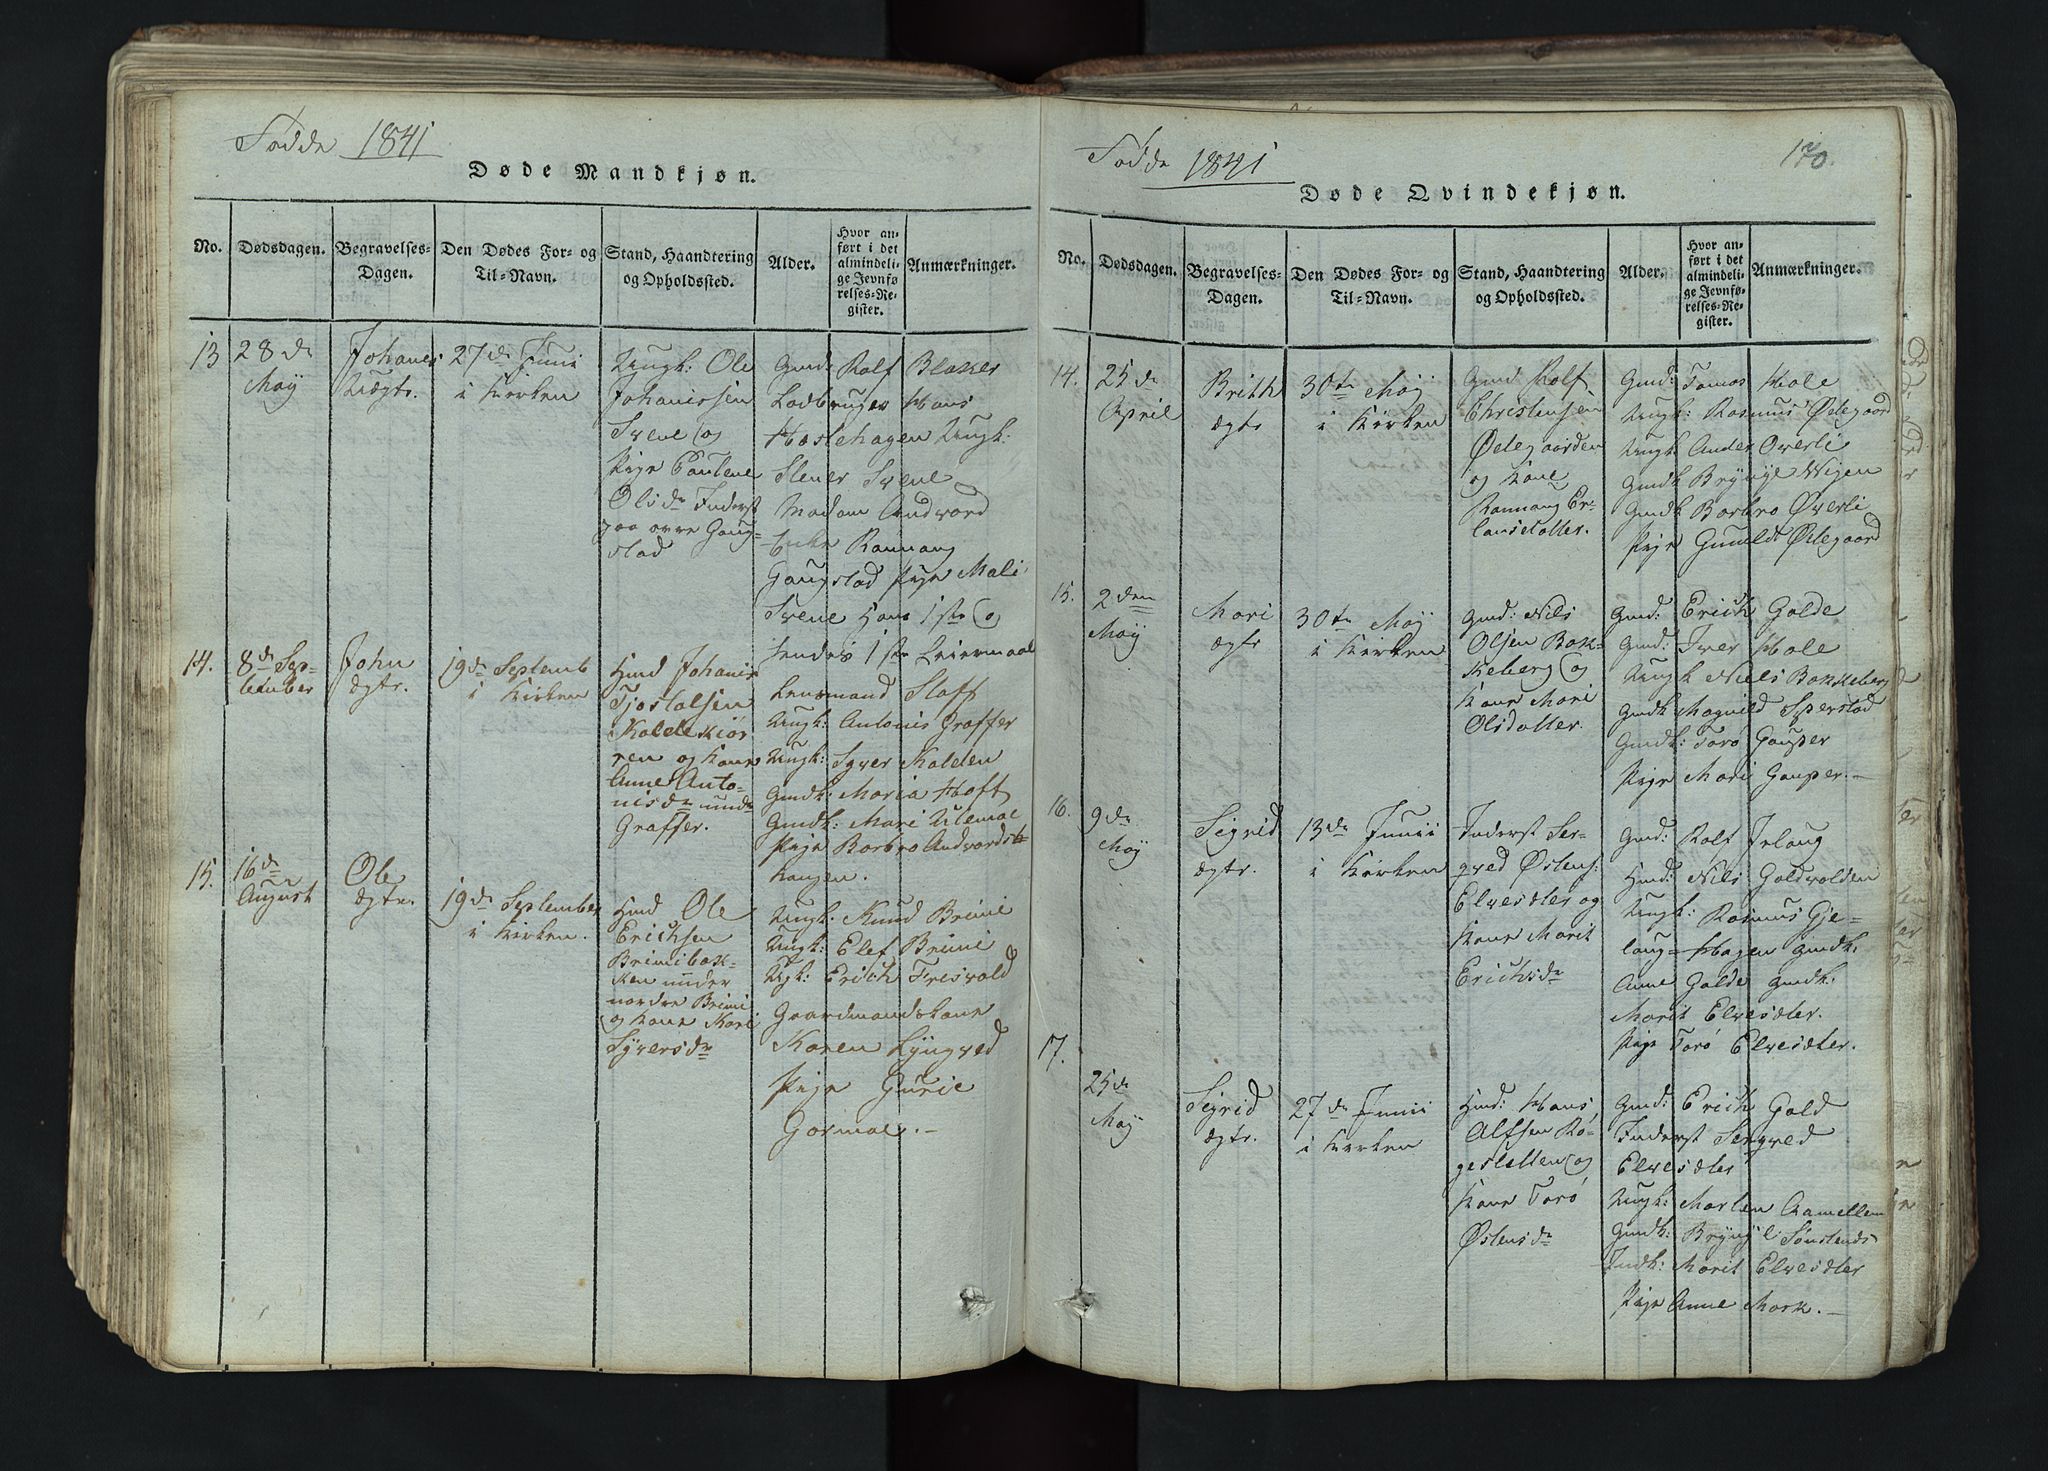 Fødde 1841
Døde Mandkjøn.
No.
Dødsdagen.
Begravelses-
Dagen.
Den Dødes For- og
Til-Navn.
Stand, Haandtering
og Opholdssted.
Alder.
Hvor an-
ført i det
almindeli-
ge Jevnfø
relses-Re-
gister.
Anmærkninger.
13
28de
May
Johanes
Uægte.
27de Junii
i Kirken
Ungk: Ole
Johanissen
Svene og
Pige Pauline
Olsdr Inderst
paa øvre Goug-
stad
Gmd: Rolf Blaker
Ladbruger Hans
Haslehagen Ungk:
Stener Svene
Madam Andvord
Enke Rannoug
Gougstad Pige Mali
Svene Hans 1ste og
hendes 1ste Leiermaal
14.
8de Sep-
tember
John
ægte.
19de Septemb
i Kirken
Hmd Johanis
Tjostolsen
Kolden
ren og Kone
Anne Anto-
nisdr under
Graffer.
Lensmand Staff
Ungk: Antonis Graffer
Ungk: Syver Kolden
Gmdk: Maria Hoft
Gmdk: Mari Ulemoe
Pige Barbro Andvords
haugen.
15.
16de
August
Ole
ægte.
19de September
i Kirken.
Hmd Ole
Erichsen
Brimibak-
ken under
nordre Brimi
og Kone Kari
Syversdr
Ungk: Knud Brimi
Ungk: Elef Brimi
Ugk: Erich Tresvold
Gaardmandskone
Karen Lyngved
Pige Gurie
Gormoe.
Fødde 1841
170.
Døde Qvindekjøn.
No.
Dødsdagen.
Begravelses-
Dagen.
Den Dødes For- og
Til-Navn.
Stand, Haandtering
og Opholdssted.
Alder.
Hvor an-
ført i det
almindeli-
ge Jevnfø-
relses-Re-
gister.
Anmærkninger.
14.
25de
April
Brith
ægte
30te May
i Kirken
Gmd Rolf
Christensen
Ødegaarden
og Kone
Rannaug Er-
landsdatter.
Gmd: Tomas Hole
Ungk: Rasmus Ødegaard
Ungk Anders Øverli
Gmdk Brynye Wigen
Gmdk Barbro Øverli
Pige Gunild Ødegaard
15.
2den
May
Mari
ægte
30te May
i Kirken
Gmd: Nils
Olsen Bak-
keberg og
Kone Mari
Olsdatter.
Gmd: Erich Golde
Gmd: Iver Hole
Ungk Niels Bakkeberg
Gmdk Magnild Sperstad
Gmdk: Torø Gouper
Pige Mari Gouper.
16.
9de
May
Sigrid
ægte.
13de Junii
i Kirken
Inderst Ser-
qved Østens:
Elvesæter og
Kone Marit
Erichsdr
Gmd: Rolf
Hmd: Nils Goldvolden
Ungk: Rasmus Gje-
loug-Hagen Gmdk:
Anne Golde Gmdk:
Marit Elvesæter.
Pige Torø Elvesæter.
17.
25de
May
Sigrid
ægte.
27de Junii
i Kirken
Hmd: Hans
Alfsen Rø-
gesletten og
Kone Torø
Østensdr
Gmd: Erich Gold
Inderst Serqved
Elvesæter
Ungk: Morten
Gmdk: Bryngel
Indk: Marit Elvesæter
Pige Anne Mork.